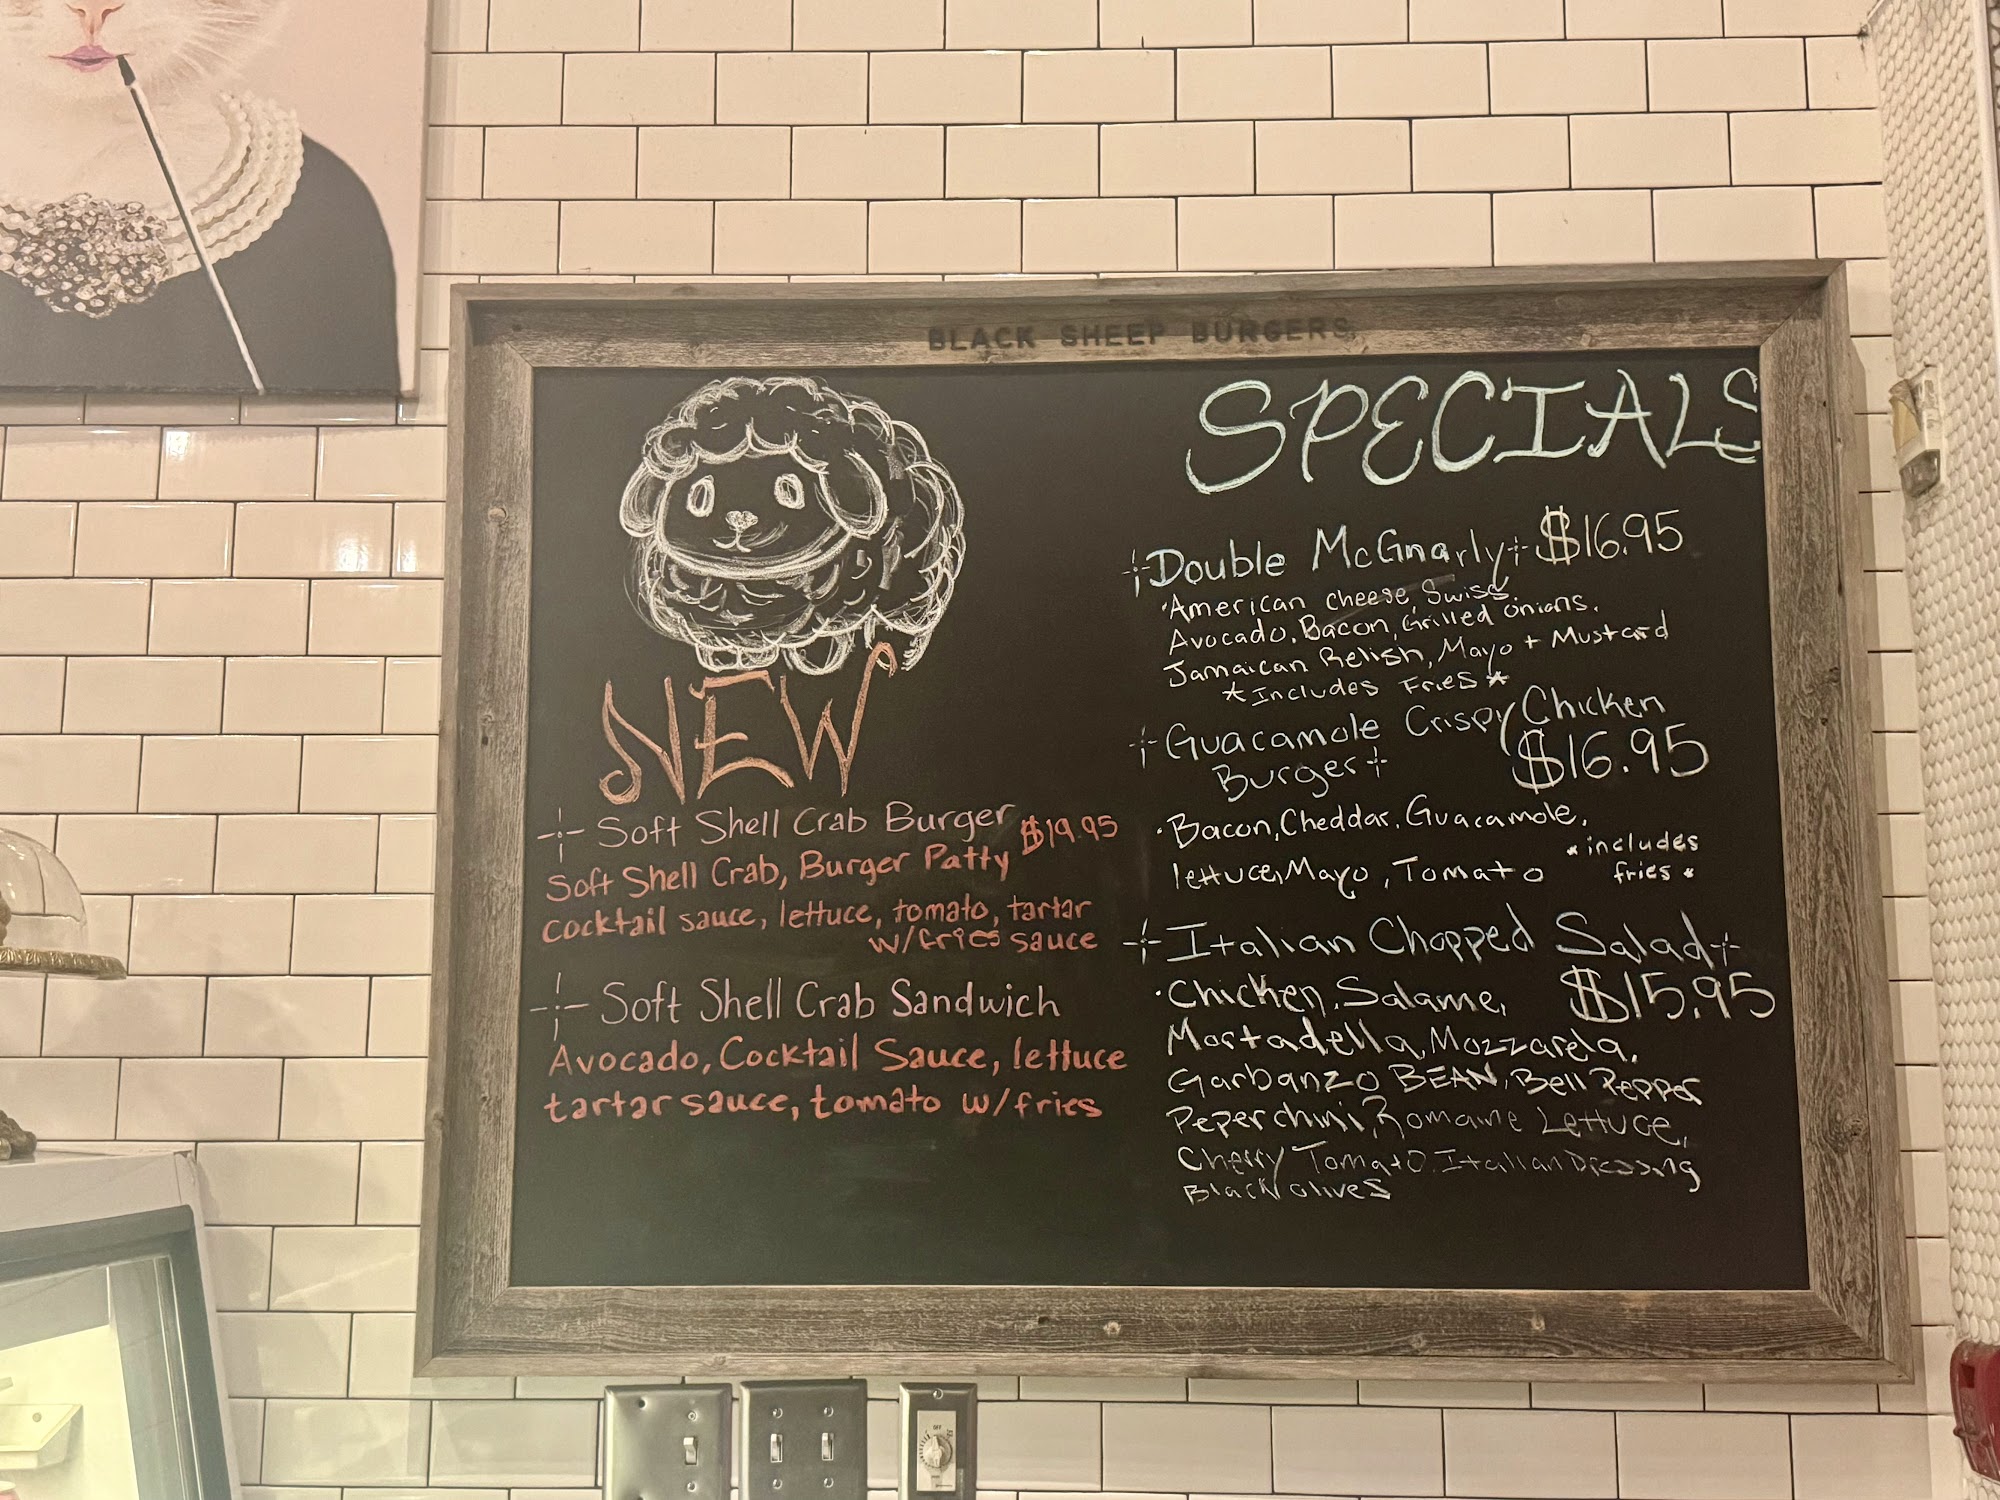 BLACK SHEEP BURGERS
NEW
Soft Shell Crab Burger $19.95
Soft Shell Crab, Burger Patty
cocktail sauce, lettuce, tomato, tartar
w/fries sauce
Soft Shell Crab Sandwich
Avocado, Cocktail Sauce, lettuce
tartar sauce, tomato w/fries
SPECIALS
Double McGnarly $16.95
·American cheese, Swiss,
Avocado, Bacon, Grilled onions,
Jamaican Relish, Mayo + Mustard
*Includes Fries*
Guacamole Crispy Chicken
Burger $16.95
·Bacon, Cheddar, Guacamole,
lettuce, Mayo, Tomato
*includes
fries*
Italian Chopped Salad
·Chicken, Salame, $15.95
Mortadella, Mozzarela,
Garbanzo BEAN, Bell Pepper
Peperchini, Romaine Lettuce,
Cherry Tomato, Italian Dressing
Black olives
OFF